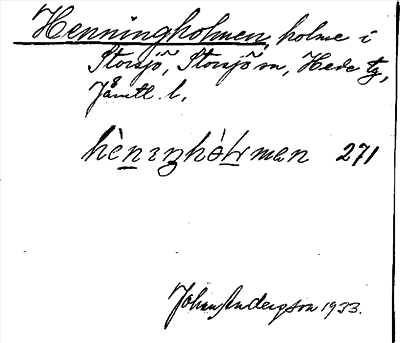 Henningholmen, holme i
Storsjö, Storsjö sn, Hede tg,
Jämtl. l.
hènıŋhòlmen 271
Johan Andersson 1933.